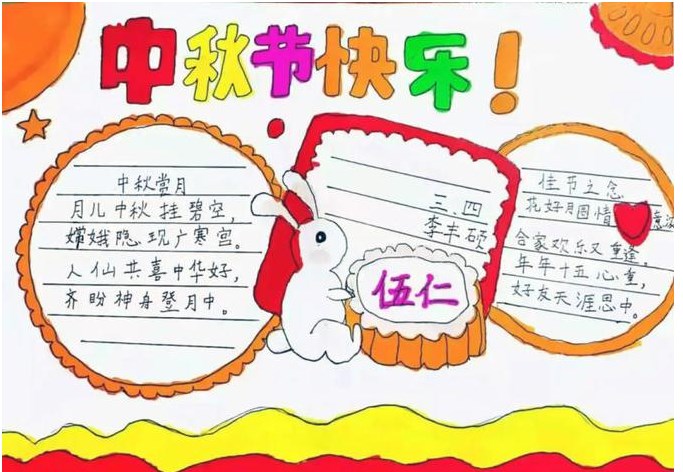 中秋节快乐!
中秋赏月
月儿中秋挂碧空,
嫦娥隐现广寒宫。
人仙共喜中华好,
齐盼神舟登月中。
三.四
李丰硕
伍仁
佳节之念
花好月圆情意浓
合家欢乐又重逢。
年年十五心重,
好友天涯思中。